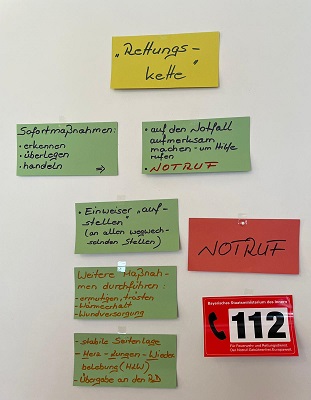 „Rettungs-
kette"
Sofortmaßnahmen:
• erkennen
• überlegen
• handeln ⇒
• auf den Notfall
aufmerksam
machen - um Hilfe
rufen
• NOTRUF
• Einweiser „auf-
stellen"
(an allen wegwech-
selnden Stellen)
NOTRUF
Weitere Maßnah-
men durchführen:
- ermutigen, trösten
- Wärmeerhalt
- Wundversorgung
Bayerisches Staatsministerium des Innern
112
Für Feuerwehr und Rettungsdienst.
Der Notruf-Geheimcode Europaweit.
- stabile Seitenlage
- Herz-Lungen-Wieder
belebung (HLW)
- Übergabe an den RD